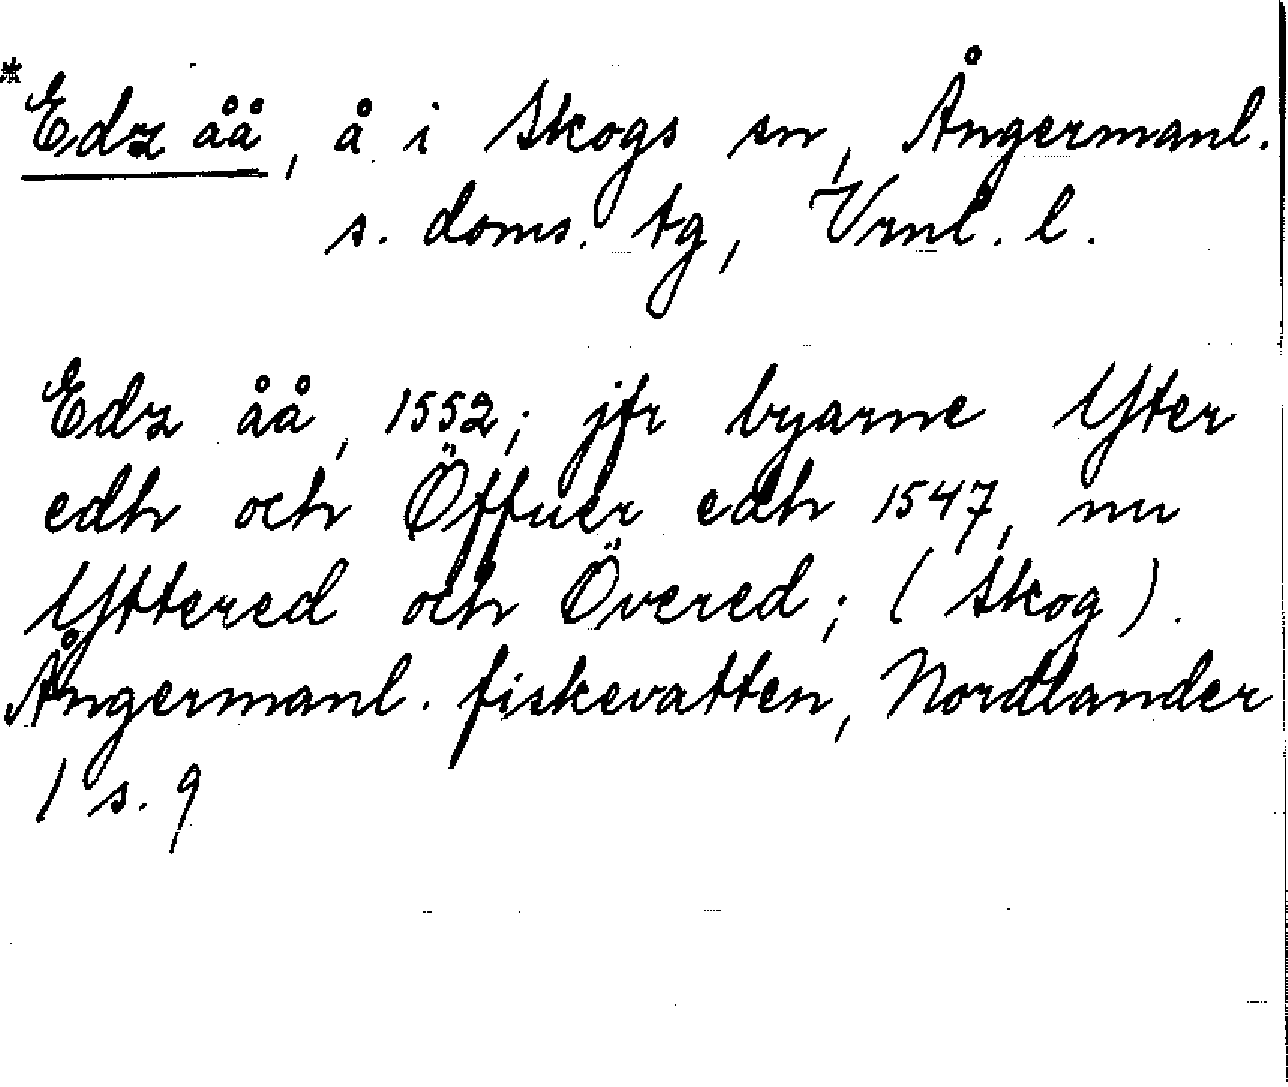 *Edz åå, å i Skogs sn, Ångermanl.
s. doms. tg, Vrnl. l.
Edz åå, 1552; jfr byarne Ytter
edh och Öffuer edh 1547, nu
Yttered och Övered; (Skog).
Ångermanl. fiskevatten, Nordlander
1 s. 9